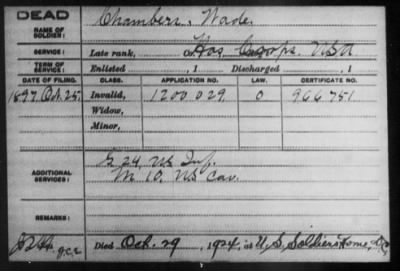 DEAD
NAME OF SOLDIER:
Chambers, Wade.
SERVICE:
Late rank, Hos Corps. USA
TERM OF SERVICE:
Enlisted , 1 Discharged , 1
DATE OF FILING. CLASS. APPLICATION NO. LAW. CERTIFICATE NO.
1897 Oct. 25. Invalid, 1200 029 0 966 751
Widow,
Minor,
ADDITIONAL SERVICES:
G 24, US Inf.
M 10, US Cav.
REMARKS:
Died Oct. 29, 1924, at U.S. Soldiers Home, D.C.